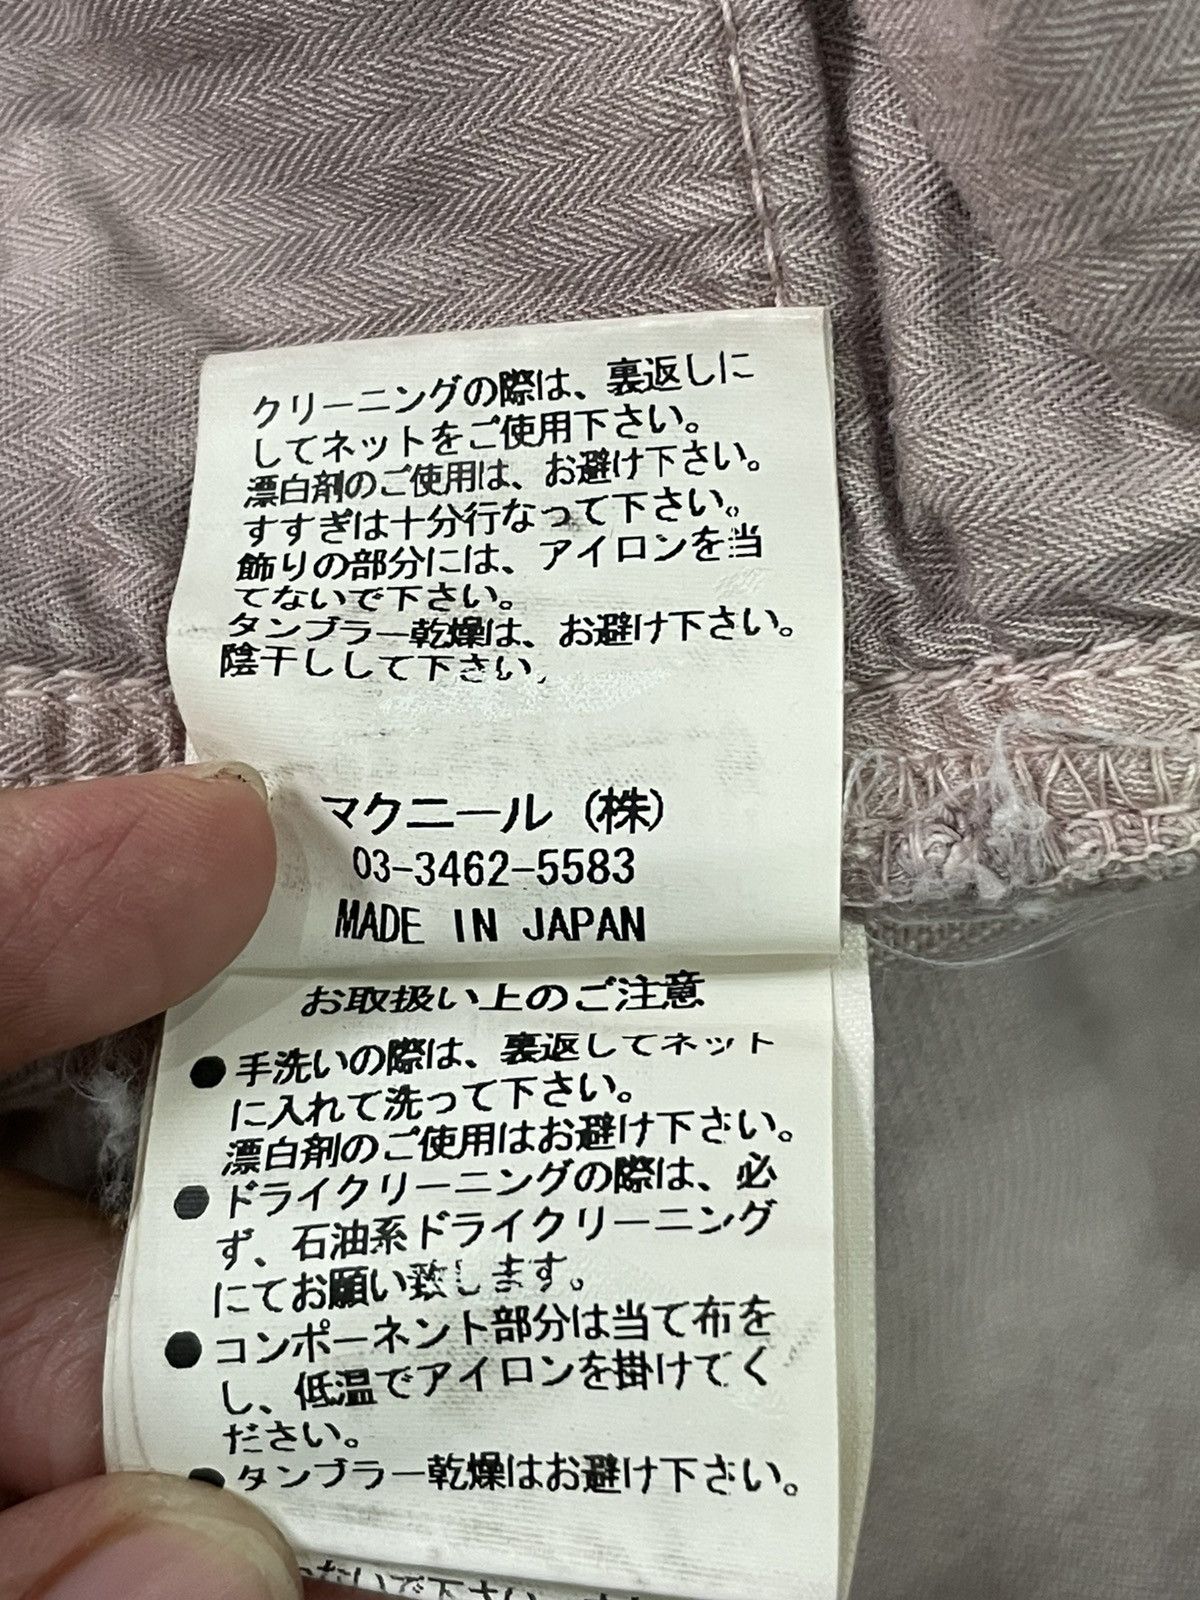 クリーニングの際は、裏返しに
してネットをご使用下さい。
漂白剤のご使用は、お避け下さい。
すすぎは十分行なって下さい。
飾りの部分には、アイロンを当
てないで下さい。
タンブラー乾燥は、お避け下さい。
陰干しして下さい。
マクニール (株)
03-3462-5583
MADE IN JAPAN
お取扱い上のご注意
● 手洗いの際は、裏返してネット
に入れて洗って下さい。
漂白剤のご使用はお避け下さい。
● ドライクリーニングの際は、必
ず、石油系ドライクリーニング
にてお願い致します。
● コンポーネント部分は当て布を
し、低温でアイロンを掛けてく
ださい。
● タンブラー乾燥はお避け下さい。
ないで下さい